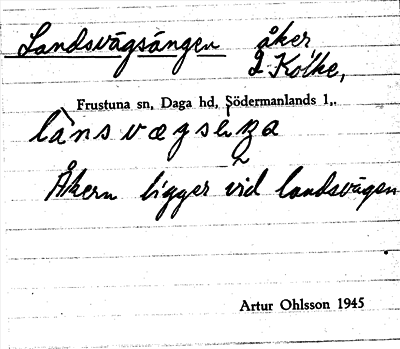 Landsvägsängen åker
Kolke,
Frustuna sn, Daga hd, Södermanlands l,.
Åkern ligger vid landsvägen
Artur Ohlsson 1945